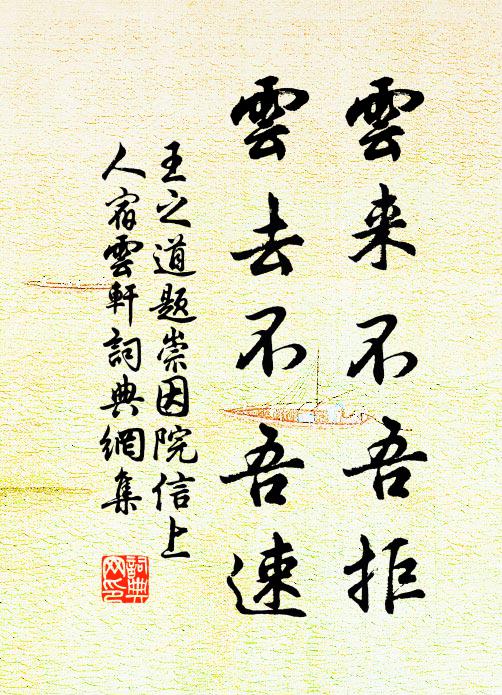 雲来不吾拒
雲去不吾速
王之道題崇因院信上
人宿雲軒詞典網集
詞典
网印